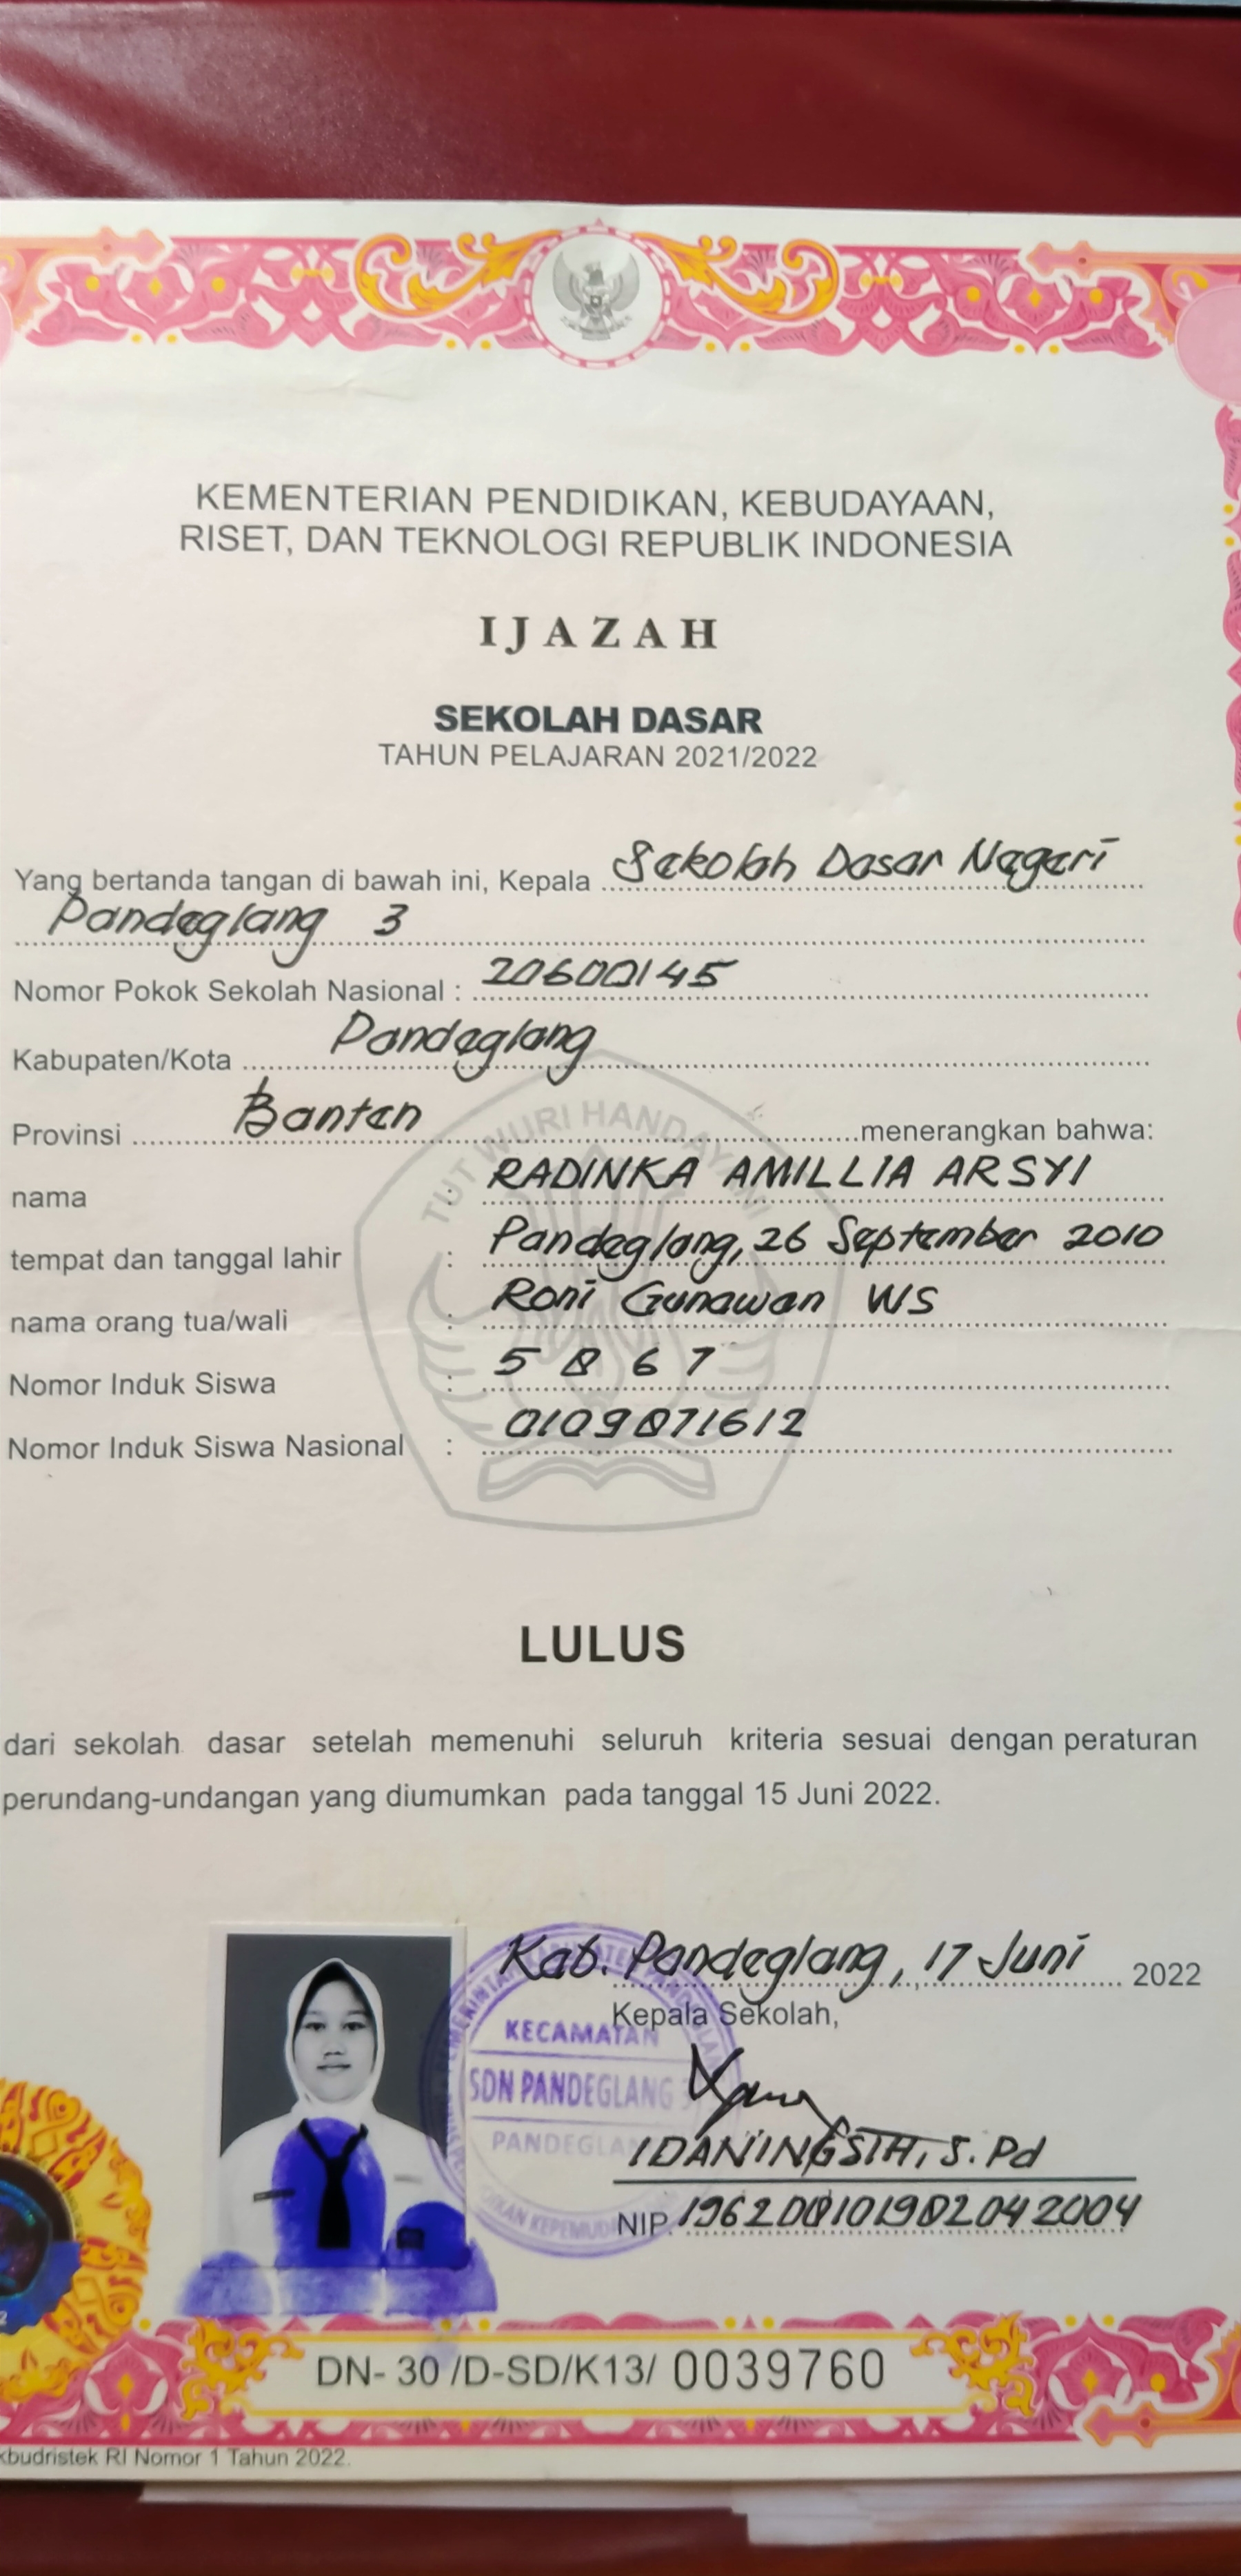 KEMENTERIAN PENDIDIKAN, KEBUDAYAAN,
RISET, DAN TEKNOLOGI REPUBLIK INDONESIA
IJAZAH
SEKOLAH DASAR
TAHUN PELAJARAN 2021/2022
Yang bertanda tangan di bawah ini, Kepala Sekolah Dasar Negeri
Pandeglang 3
Nomor Pokok Sekolah Nasional : 20600145
Kabupaten/Kota Pandeglang
Provinsi Banten menerangkan bahwa:
TUT WURI HANDAYANI
nama : RADINKA AMILLIA ARSYI
tempat dan tanggal lahir : Pandeglang, 26 September 2010
nama orang tua/wali : Roni Gunawan WS
Nomor Induk Siswa : 5867
Nomor Induk Siswa Nasional : 0109871612
LULUS
dari sekolah dasar setelah memenuhi seluruh kriteria sesuai dengan peraturan
perundang-undangan yang diumumkan pada tanggal 15 Juni 2022.
Kab. Pandeglang, 17 Juni 2022
Kepala Sekolah,
KECAMATAN
SDN PANDEGLANG 3
IDANINGSIH, S.Pd
NIP. 196208101982042004
DN- 30 /D-SD/K13/ 0039760
kbudristek RI Nomor 1 Tahun 2022.